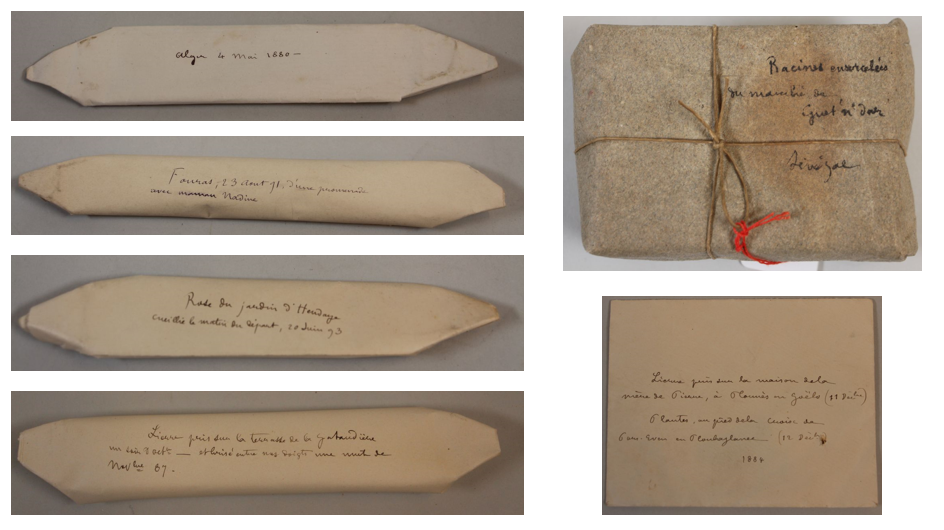 Alger 4 mai 1880 -
Fouras, 23 Aout 91, d'une promenade
avec maman Nadine
Rose du jardin d'Hendaye
cueillie le matin du départ, 20 Juin 93
Lierre pris sur la terrasse de la Gataudière
un soir d'oct — et brisé entre nos doigts une nuit de
Nov bre 87.
Racines ensorcelées
du marché de
Guet n' dar
Sénégal
Lierre pris sur la maison de la
mère de Pierre, à Plouriès en Goëlo (11 Déc bre)
Plantes, au pied de la croix de
Pors-Even en Ploubazlanec (12 Déc bre)
1884